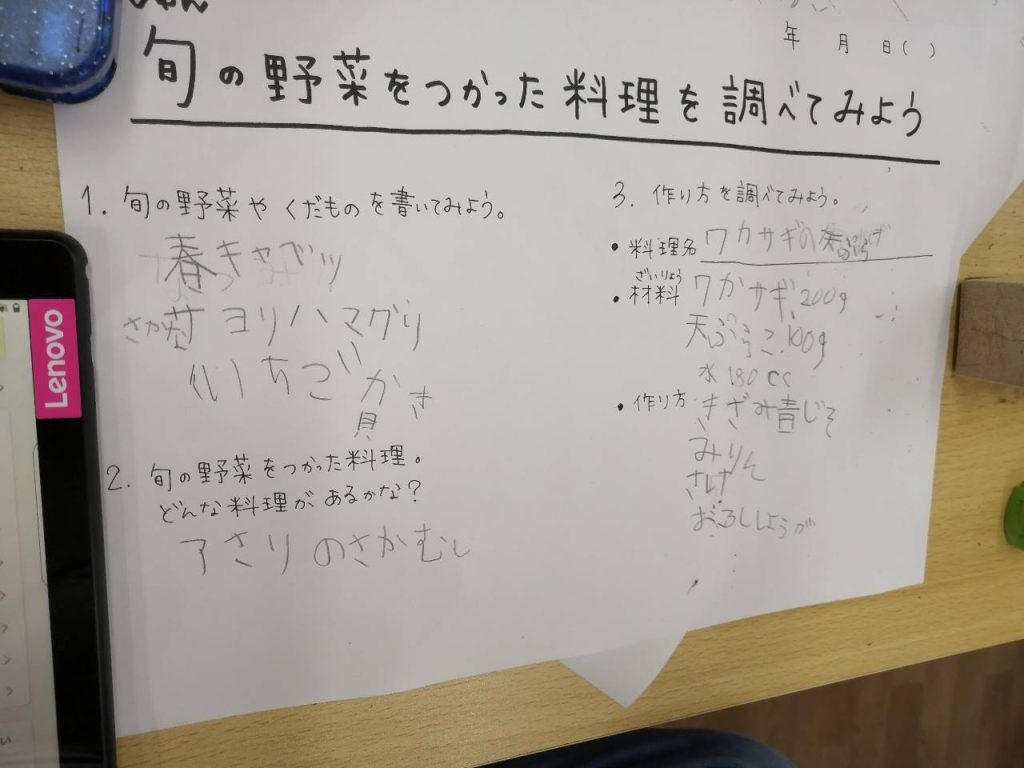 年 月 日( )
旬の野菜をつかった料理を調べてみよう
1. 旬の野菜やくだものを書いてみよう。
春キャベツ
ヨリハマグリ
いちご かき
貝
2. 旬の野菜をつかった料理。
どんな料理が、あるかな?
アサリのさかむし
3. 作り方を調べてみよう。
• 料理名 ワカサギの天ぷら
ざいりょう
• 材料 ワカサギ 200g
天ぷらこ 100g
水 180cc
• 作り方 きざみ青じそ
みりん
さけ
おろししょうが
Lenovo